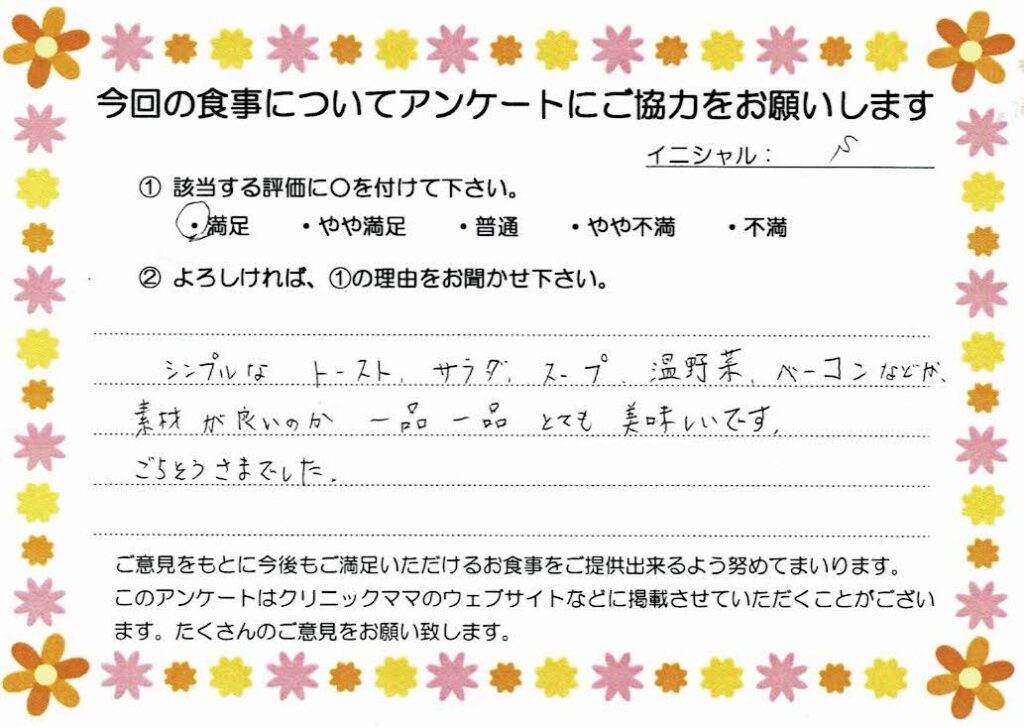 今回の食事についてアンケートにご協力をお願いします
イニシャル：
① 該当する評価に〇を付けて下さい。
・満足 ・やや満足 ・普通 ・やや不満 ・不満
② よろしければ、①の理由をお聞かせ下さい。
シンプルな トースト、サラダ、スープ、温野菜、ベーコンなどが、
素材が良いのか 一品一品 とても 美味しいです。
ごちそうさまでした。
ご意見をもとに今後もご満足いただけるお食事をご提供出来るよう努めてまいります。
このアンケートはクリニックママのウェブサイトなどに掲載させていただくことがござい
ます。たくさんのご意見をお願い致します。